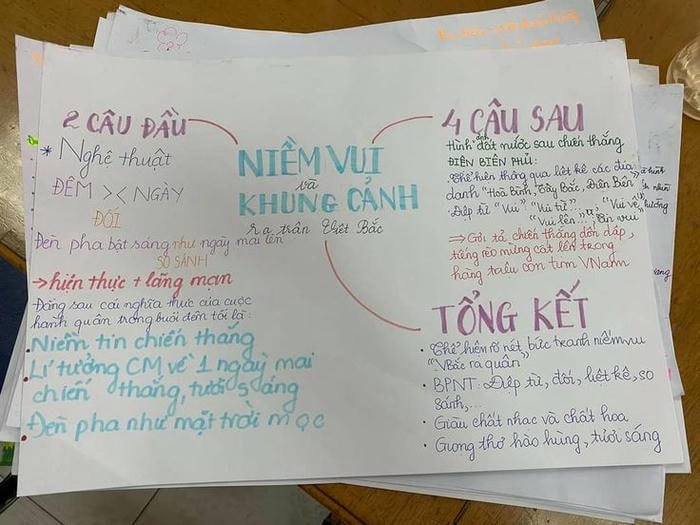 NIỀM VUI
và
KHUNG CẢNH
ra trận Việt Bắc
2 CÂU ĐẦU
* Nghệ thuật
ĐÊM >< NGÀY
ĐỐI
Đèn pha bật sáng như ngày mai lên
SO SÁNH
→ hiện thực + lãng mạn
Đằng sau cái nghĩa thực của cuộc
hành quân trong buổi đêm tối là:
• Niềm tin chiến thắng
• Lí tưởng CM về 1 ngày mai
chiến thắng, tươi sáng
• Đèn pha như mặt trời mọc
4 CÂU SAU
Hình ảnh đất nước sau chiến thắng
ĐIỆN BIÊN PHỦ:
Thể hiện thông qua liệt kê các địa
danh "Hoà Bình, Tây Bắc, Điện Biên"
Điệp từ "Vui", "Vui từ", "Vui về",
"Vui lên"... Tin vui
⇒ Gợi tả chiến thắng dồn dập,
tiếng reo mừng cất lên trong
hàng triệu con tim VNam
TỔNG KẾT
• Thể hiện rõ nét bức tranh niềm vui
"VBắc ra quân"
• BPNT: Điệp từ, đối, liệt kê, so
sánh,...
• Giàu chất nhạc và chất hoạ
• Giọng thơ hào hùng, tươi sáng